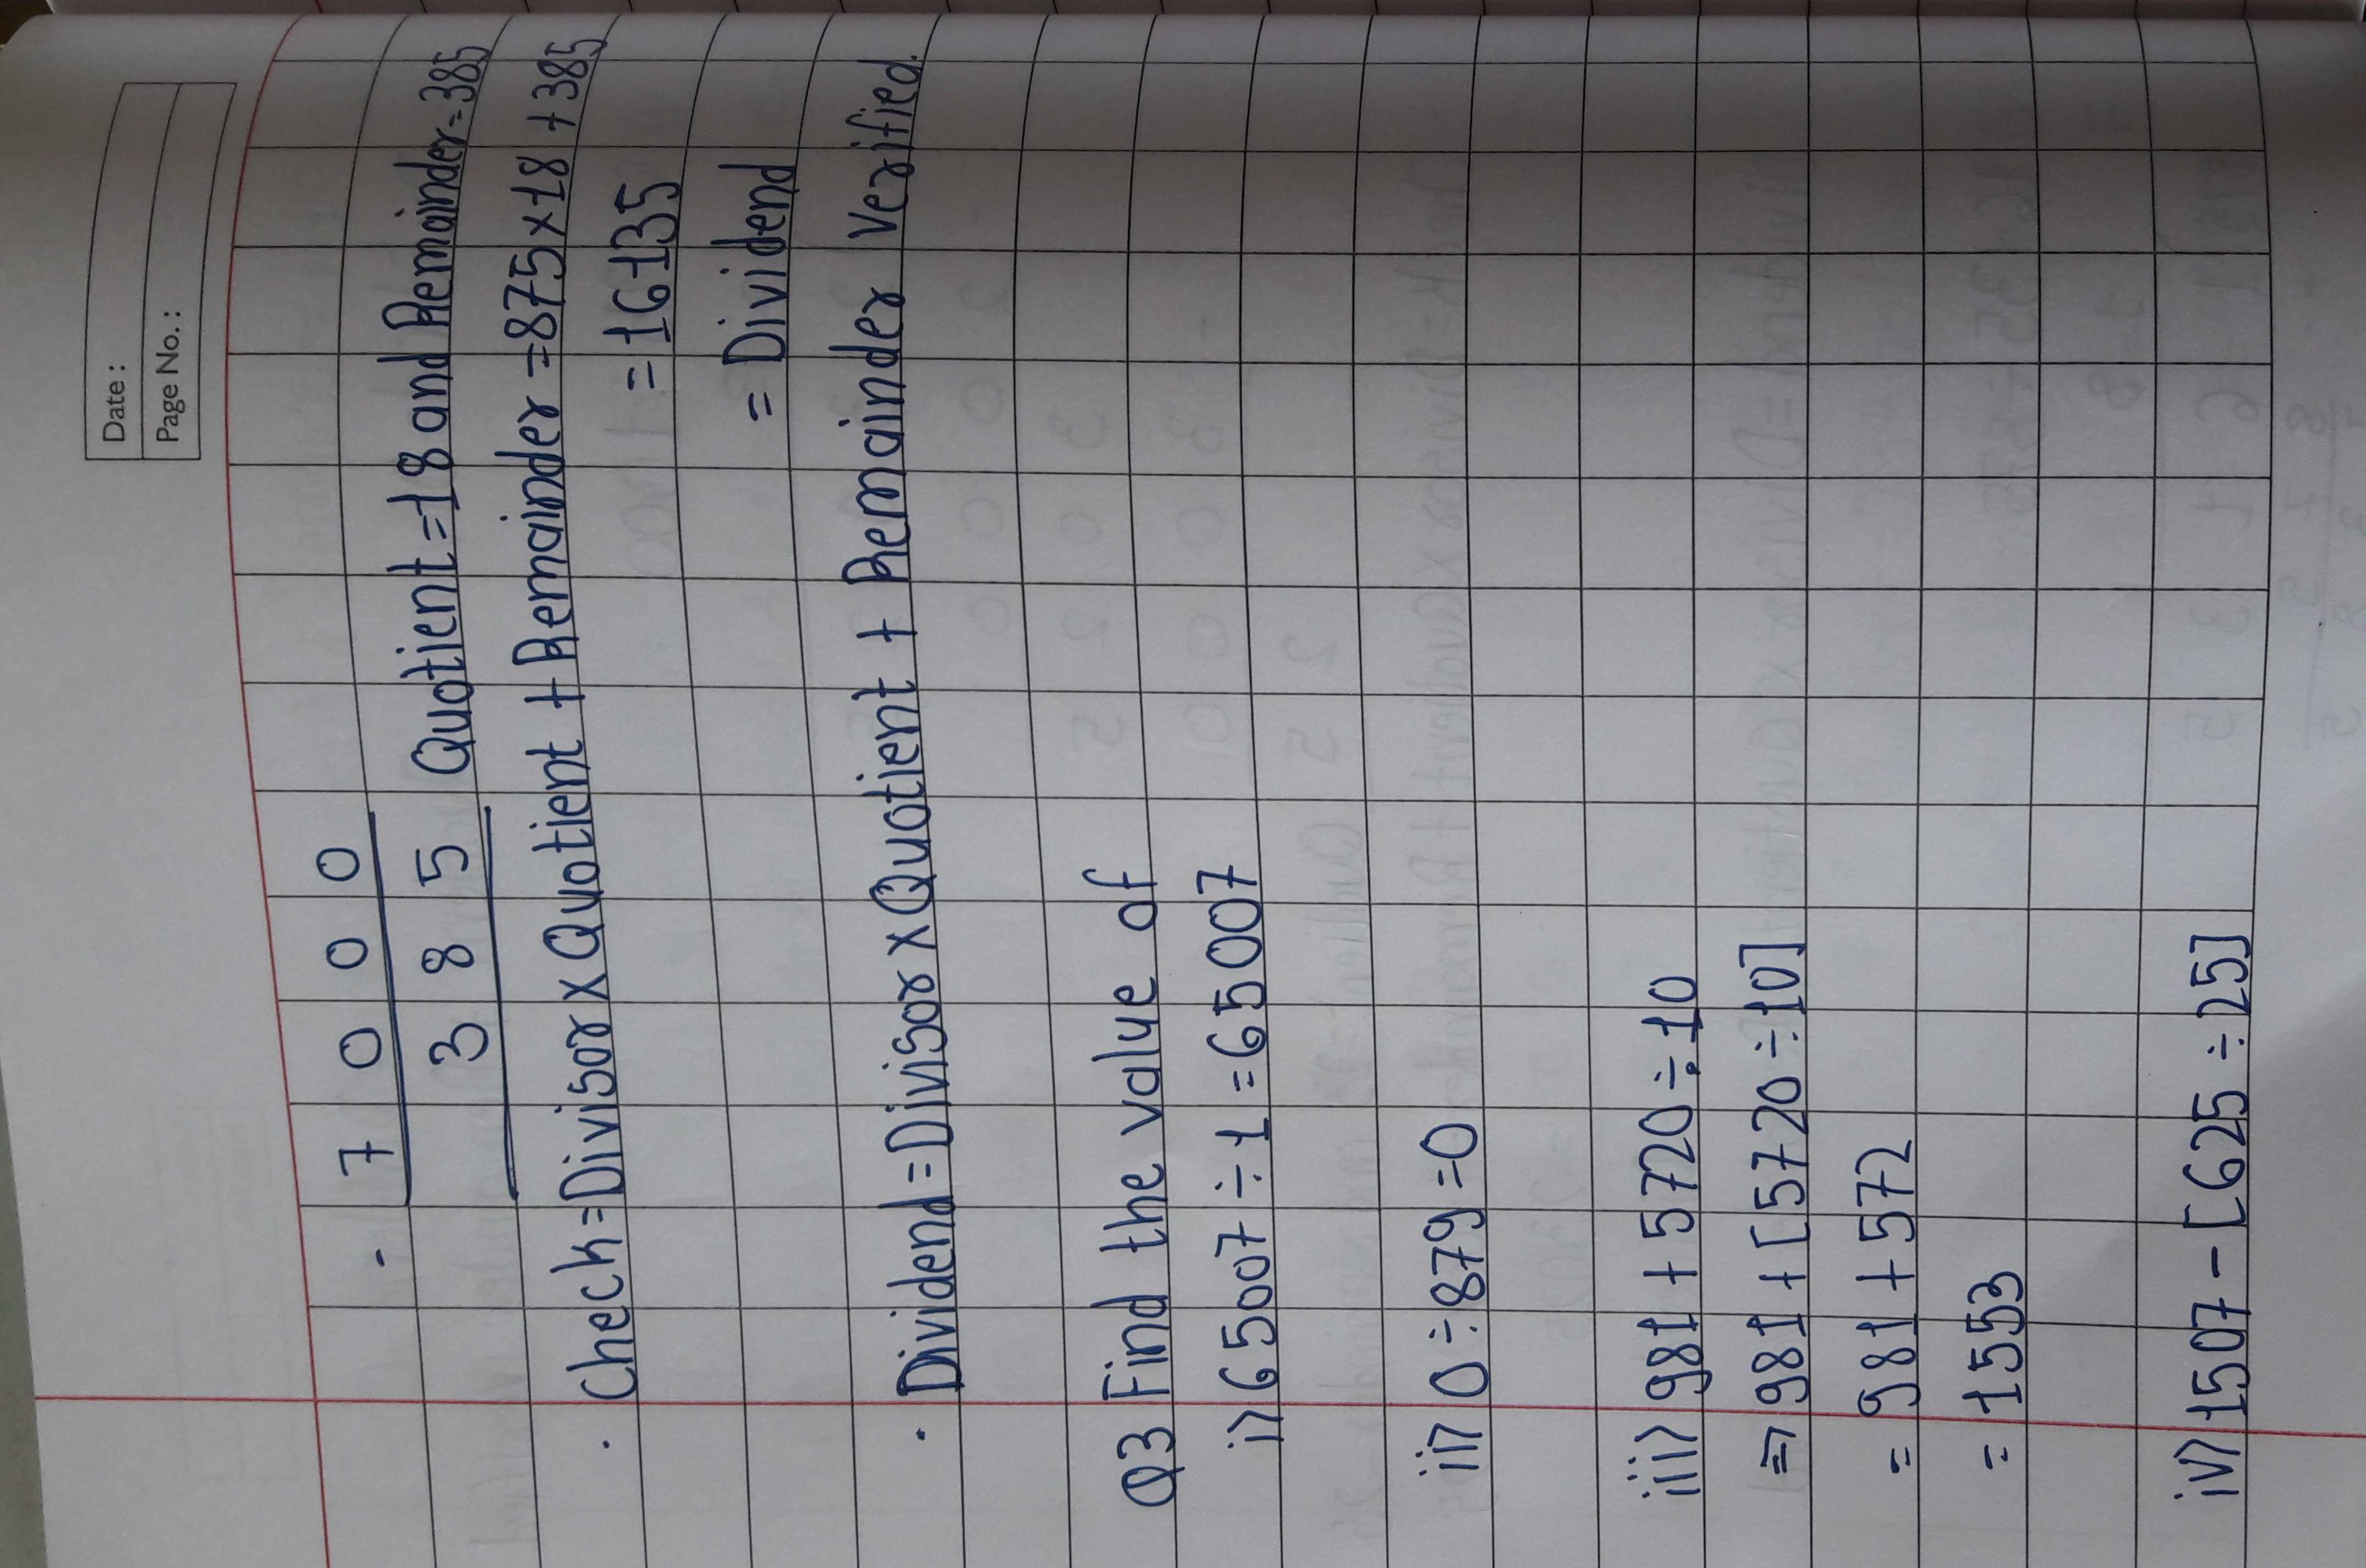 Date :
Page No. :
- 7 0 0 0
3 8 5 Quotient=18 and Remainder=385
. Check=Divisor×Quotient + Remainder =875×18 +385
= 16135
= Dividend
. Dividend=Divisor×Quotient + Remainder verified.
Q3 Find the value of
i) 65007 ÷ 1 =65007
ii) 0 ÷ 879=0
iii) 981 + 5720 ÷ 10
⇒ 981 + [5720 ÷ 10]
= 981 + 572
= 1553
iv) 1507 - [625 ÷ 25]